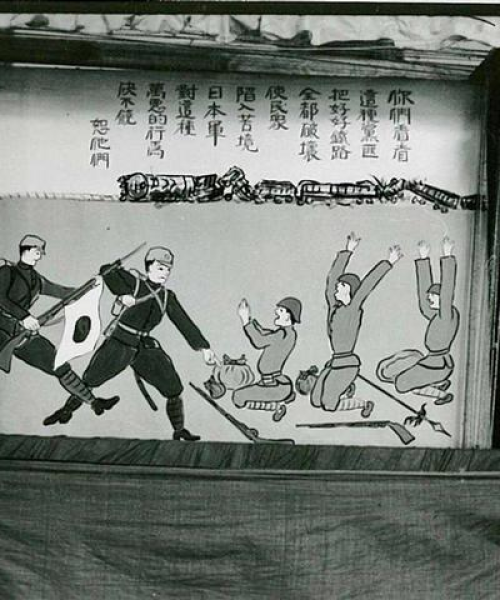 你們看看
這種黨匪
把好好鐵路
全都破壞
使民衆
陷入苦境
日本軍
對這種
萬惡的行為
決不饒
恕他們